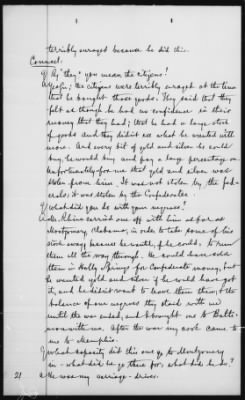 terribly enraged because he did this.
Counsel.
Q By "they" you mean the citizens?
A Yes sir; the citizens were terribly enraged at the time
that he bought those goods. They said that they
felt as though he had no confidence in their
money that they had; that he had a large stock
of goods and they didnt see what he wanted with
more. And every bit of gold and silver he could
buy, he would buy and pay a large percentage on
Unfortunately for me that gold and silver was
stolen from him. It was not stolen by the fed-
erals; it was stolen by the Confederates
Q What did you do with your negroes?
A Mr. carried one off with him as far as
Montgomery, Alabama, in order to take some of his
stock away because he would, if he could, to run
them all the way through. He could have sold
them in Holly Springs for Confederate money, but
he wanted gold and silver if he could have got
it, and he didnt want to leave them there, & the
balance of our negroes they staid with us
until the war ended, and I brought one to Balti-
more with me. After the war my cook came to
me to Memphis.
Q What capacity did this one go to Montgomery
in - what did he go there for, what did he do?
A He was my carriage-driver.
21